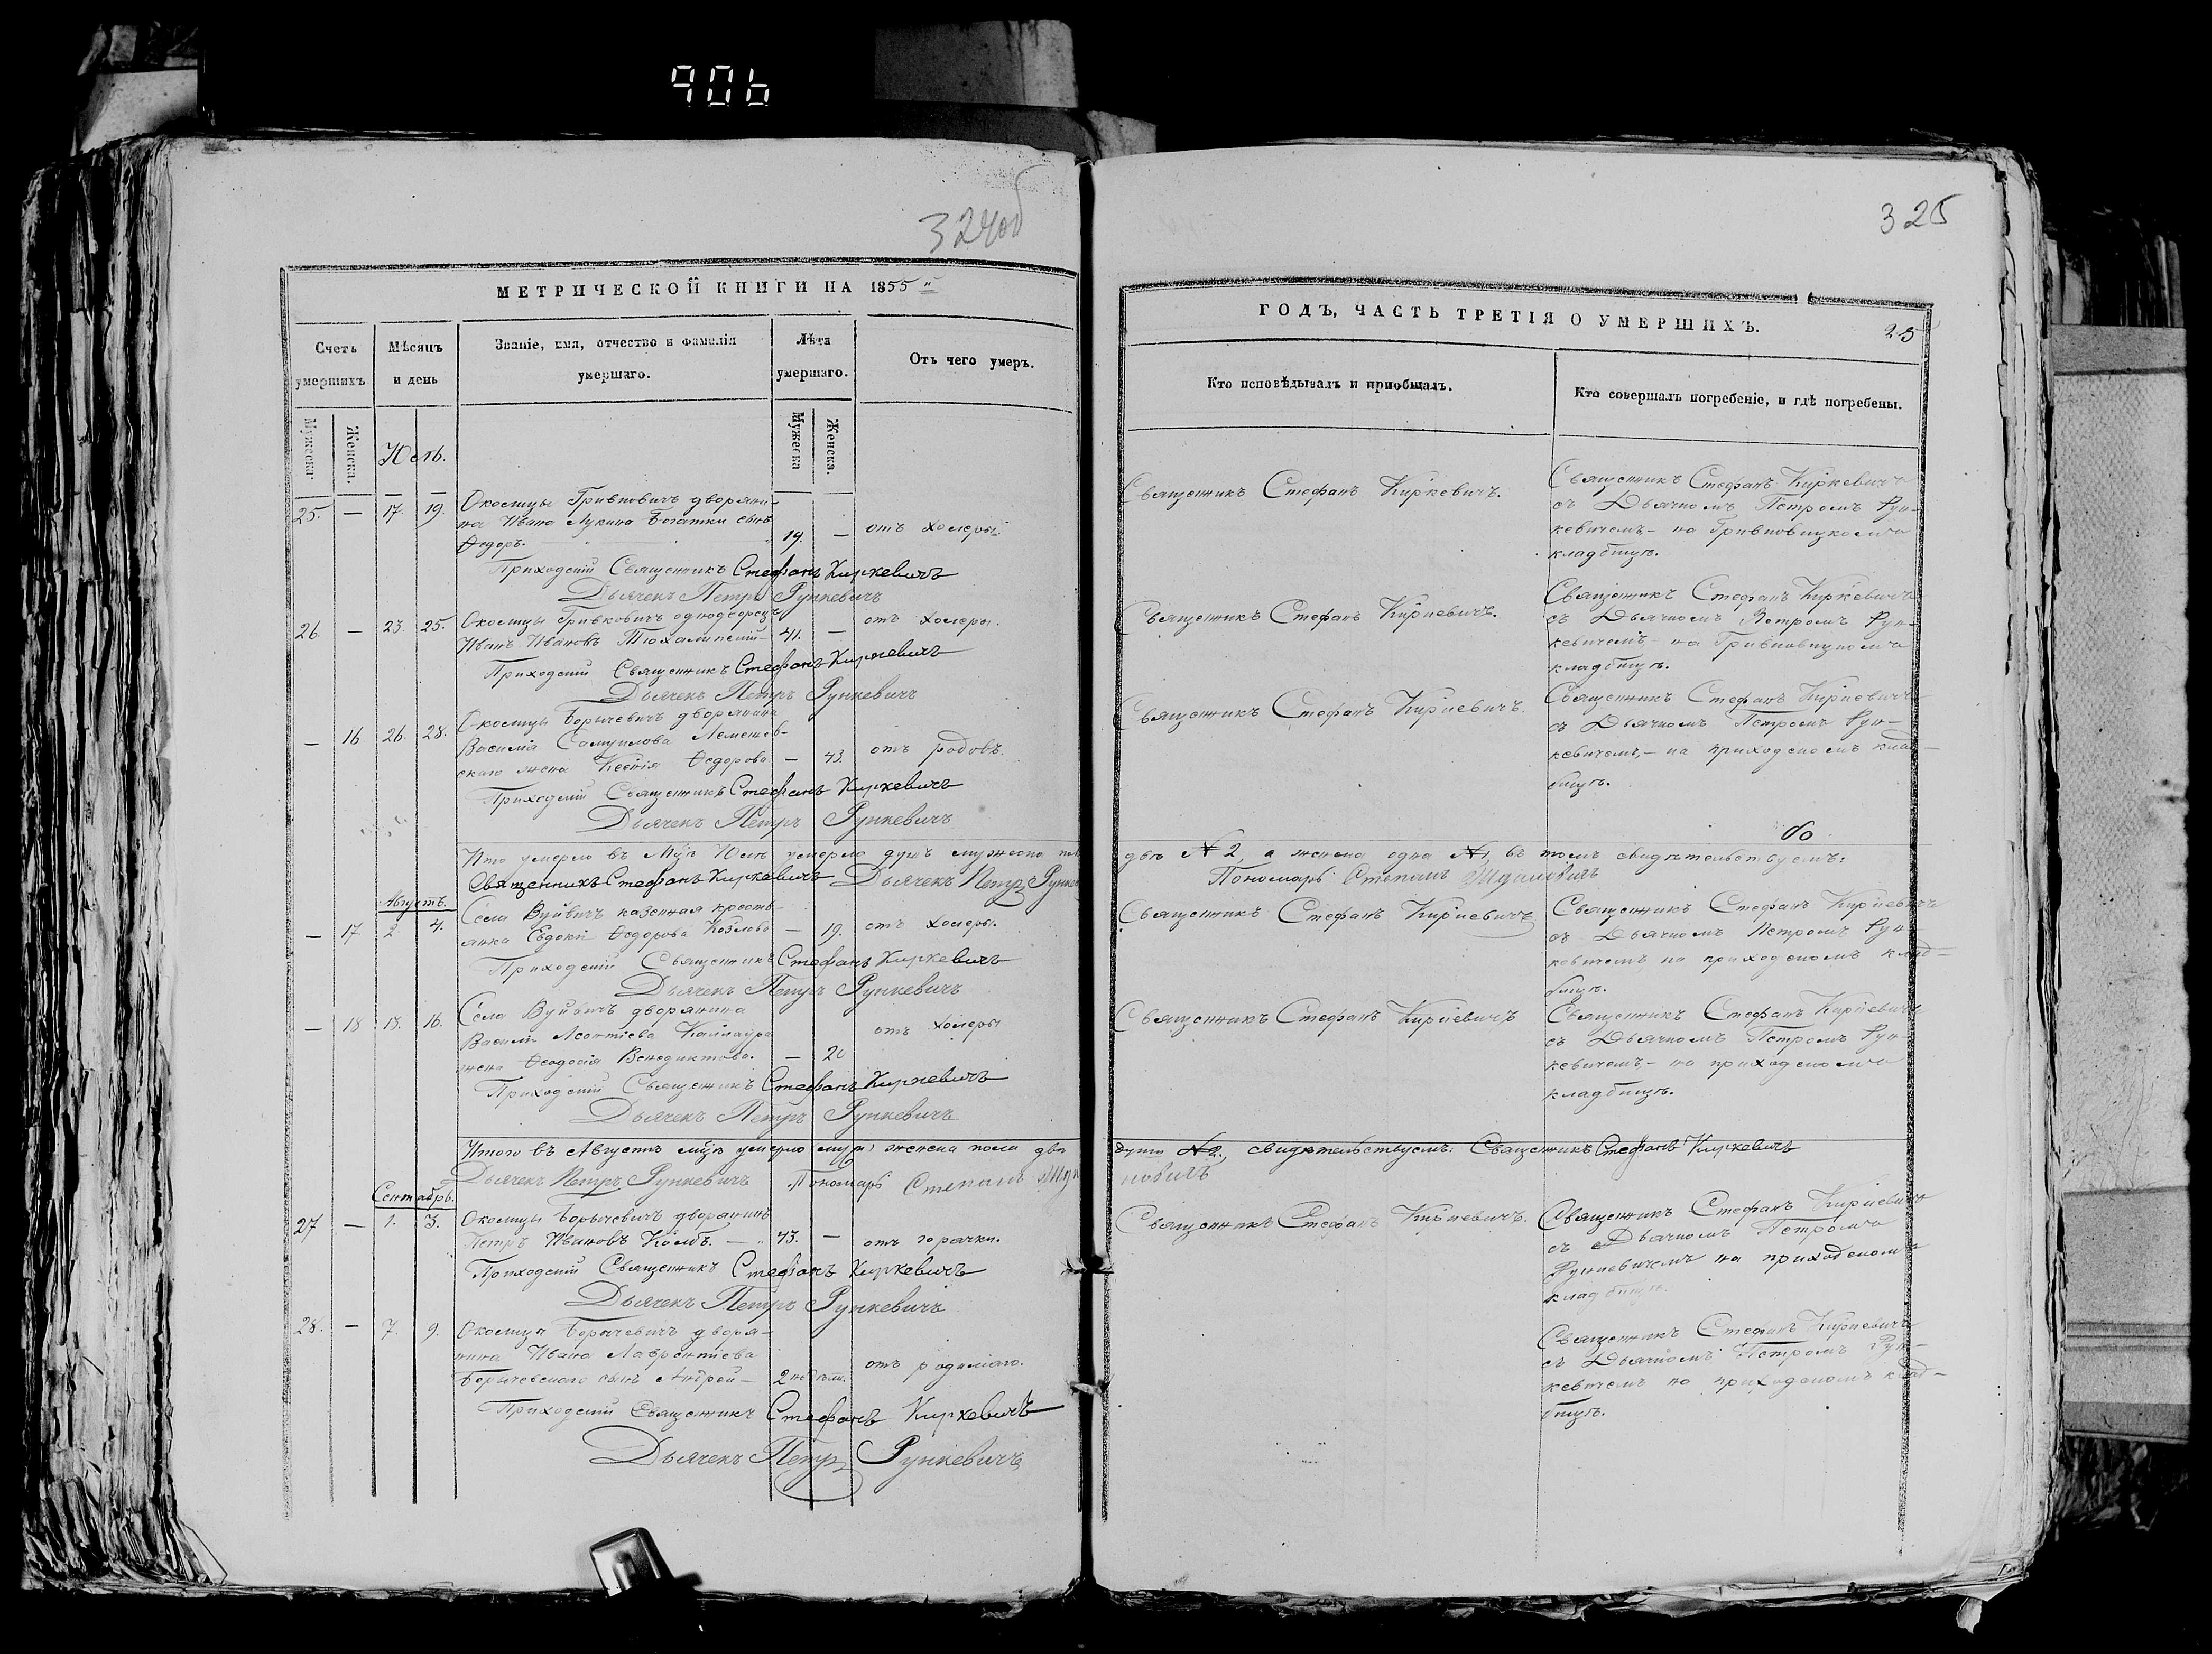 906
324об
325
МЕТРИЧЕСКОЙ КНИГИ НА 1855
ГОДЪ, ЧАСТЬ ТРЕТІЯ О УМЕРШИХЪ.
25
Счетъ умершихъ
Мѣсяцъ и день
Званіе, имя, отчество и фамилія умершаго.
Лѣта умершаго.
Отъ чего умеръ.
Кто исповѣдывалъ и пріобщалъ.
Кто совершалъ погребеніе, и гдѣ погребены.
Мужеска
Женска.
Мужеска
Женска.
Юль.
25. — 17. 19. Околицы Гривковичъ дворяни-
на Ивана Лукина Богатки сынъ
Ѳедоръ. 19. — отъ холеры.
Приходскій Священникъ Стефанъ Киркевичъ
Дьячекъ Петръ Рункевичъ
Священникъ Стефанъ Киркевичъ.
Священникъ Стефанъ Киркевичъ
съ Дьячкомъ Петромъ Рун-
кевичемъ - на Гривковицкомъ
кладбищѣ.
26. — 23. 25. Околицы Гривковичъ однодворецъ
Иванъ Ивановъ 41. — отъ холеры.
Приходскій Священникъ Стефанъ Киркевичъ
Дьячекъ Петръ Рункевичъ
Священникъ Стефанъ Киркевичъ.
Священникъ Стефанъ Киркевичъ
съ Дьячкомъ Петромъ Рун-
кевичемъ - на Гривковицкомъ
кладбищѣ.
— 16. 26. 28. Околицы Борычевичъ дворянина
Василія Самуилова Лемешев-
скаго жена Ксенія Ѳедорова — 43. отъ родовъ.
Приходскій Священникъ Стефанъ Киркевичъ
Дьячекъ Петръ Рункевичъ
Священникъ Стефанъ Киркевичъ.
Священникъ Стефанъ Киркевичъ
съ Дьячкомъ Петромъ Рун-
кевичемъ, - на приходскомъ клад-
бищѣ.
умерло въ Юлѣ умерло душъ мужеска пола
двѣ № 2, а женска одна №1, въ томъ свидѣтельствуемъ:
Священникъ Стефанъ Киркевичъ Дьячекъ Петръ Рункевичъ
Пономарь Степанъ
Августъ.
— 17. 2. 4. Села Вуйвичъ казенная кресть-
янка Евдокія Ѳедорова Козлова — 19. отъ холеры.
Приходскій Священникъ Стефанъ Киркевичъ
Дьячекъ Петръ Рункевичъ
Священникъ Стефанъ Киркевичъ
Священникъ Стефанъ Киркевичъ
съ Дьячкомъ Петромъ Рун-
кевичемъ на приходскомъ клад-
бищѣ.
— 18 16. Села Вуйвичъ дворянина
Василія Леонтіева
жена Ѳеодосія Венедиктова. — 20 отъ холеры
Приходскій Священникъ Стефанъ Киркевичъ
Дьячекъ Петръ Рункевичъ
Священникъ Стефанъ Киркевичъ
Священникъ Стефанъ Киркевичъ
съ Дьячкомъ Петромъ Рун-
кевичемъ - на приходскомъ
кладбищѣ.
Итого въ Августѣ умерло женска пола двѣ
души №2, свидѣтельствуемъ: Священникъ Стефанъ Киркевичъ
Дьячекъ Петръ Рункевичъ Пономарь Степанъ
Сентябрь.
27 — 1. 3. Околицы Борычевичъ дворянинъ
Петръ Ивановъ Колбъ. — 43. — отъ горячки.
Приходскій Священникъ Стефанъ Киркевичъ
Дьячекъ Петръ Рункевичъ
Священникъ Стефанъ Киркевичъ.
Священникъ Стефанъ Киркевичъ
съ Дьячкомъ Петромъ
Рункевичемъ на приходскомъ
кладбищѣ.
28. — 7. 9. Околицы Борычевичъ дворя-
нина Ивана Лаврентіева
Борычевскаго сынъ Андрей — отъ родимаго.
Приходскій Священникъ Стефанъ Киркевичъ
Дьячекъ Петръ Рункевичъ
Священникъ Стефанъ Киркевичъ
съ Дьячкомъ Петромъ Рун-
кевичемъ на приходскомъ клад-
бищѣ.